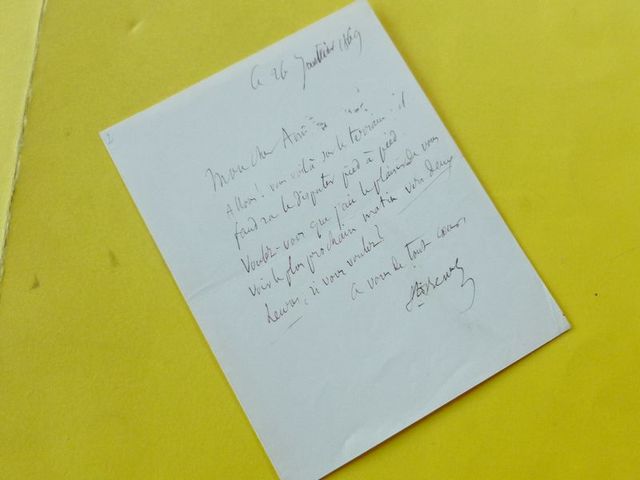 Ce 26 Janvier 1869
Mon cher Ami
Allons! vous voilà sur le terrain: il
faudra le disputer pied à pied
Voulez-vous que j'aie le plaisir de vous
voir le plus prochain matin vers deux
heures, si vous voulez?
A vous de tout coeur